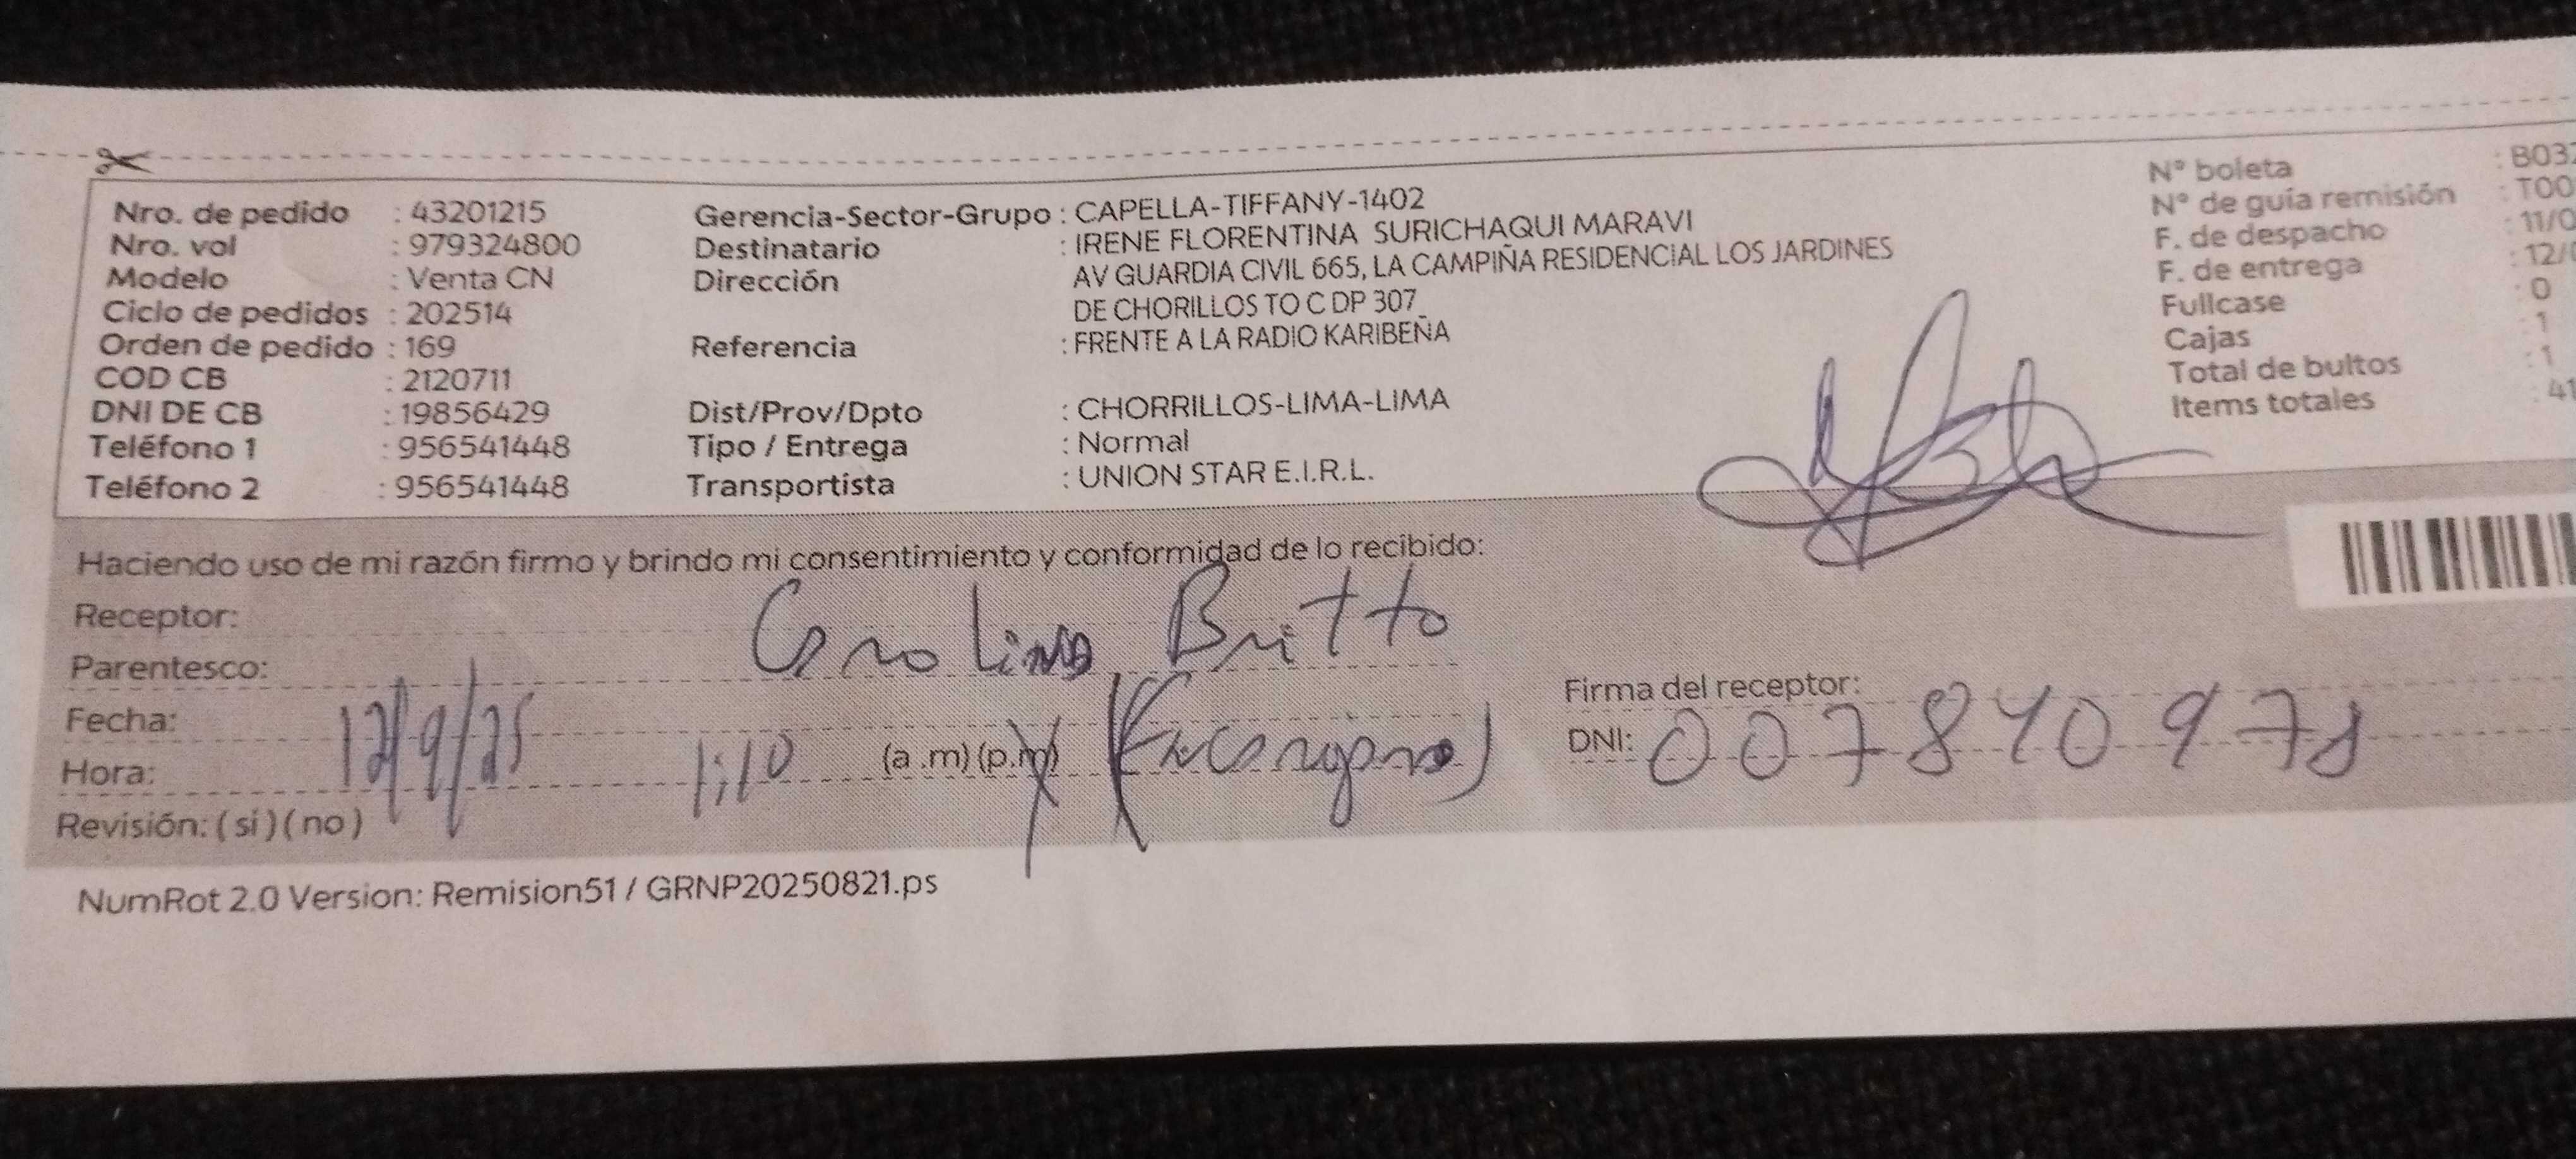 Nro. de pedido : 43201215
Nro. vol : 979324800
Modelo : Venta CN
Ciclo de pedidos : 202514
Orden de pedido : 169
COD CB : 2120711
DNI DE CB : 19856429
Teléfono 1 : 956541448
Teléfono 2 : 956541448
Gerencia-Sector-Grupo : CAPELLA-TIFFANY-1402
Destinatario : IRENE FLORENTINA SURICHAQUI MARAVI
Dirección AV GUARDIA CIVIL 665, LA CAMPIÑA RESIDENCIAL LOS JARDINES
DE CHORILLOS TO C DP 307
Referencia : FRENTE A LA RADIO KARIBEÑA
Dist/Prov/Dpto : CHORRILLOS-LIMA-LIMA
Tipo / Entrega : Normal
Transportista : UNION STAR E.I.R.L.
N° boleta : B03
N° de guía remisión : T00
F. de despacho : 11/0
F. de entrega : 12/
Fullcase : 0
Cajas : 1
Total de bultos : 1
Items totales : 41
Haciendo uso de mi razón firmo y brindo mi consentimiento y conformidad de lo recibido:
Receptor: Carolina Britto
Parentesco:
Fecha: 12/9/25
Hora: 1:10 (a .m) (p.m)
Revisión: ( si ) ( no )
Firma del receptor:
DNI: 007840978
NumRot 2.0 Version: Remision51 / GRNP20250821.ps